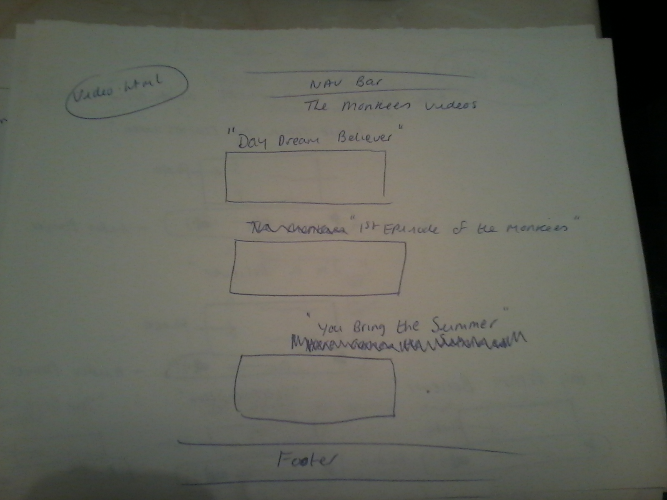 Video.html
NAV Bar
The Monkees videos
"Day Dream Believer"
"1st Episode of the Monkees"
"You Bring the Summer"
Footer